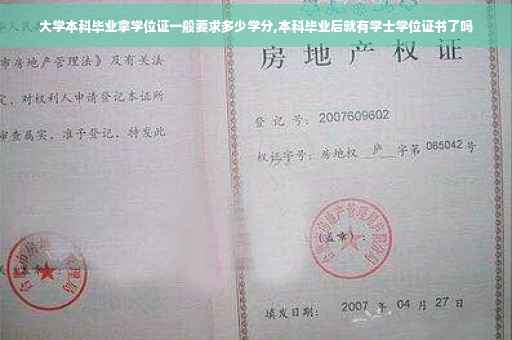 大学本科毕业拿学位证一般要求多少学分,本科毕业后就有学士学位证书了吗
市房地产管理法》及有关法
定,对权利人申请登记本证所
审查属实,准予登记,特发此
房地产权
登记号:2007609602
权证字号:房地权 庐 字第 085042 号
(盖章):
填发日期: 2007 年 04 月 27 日